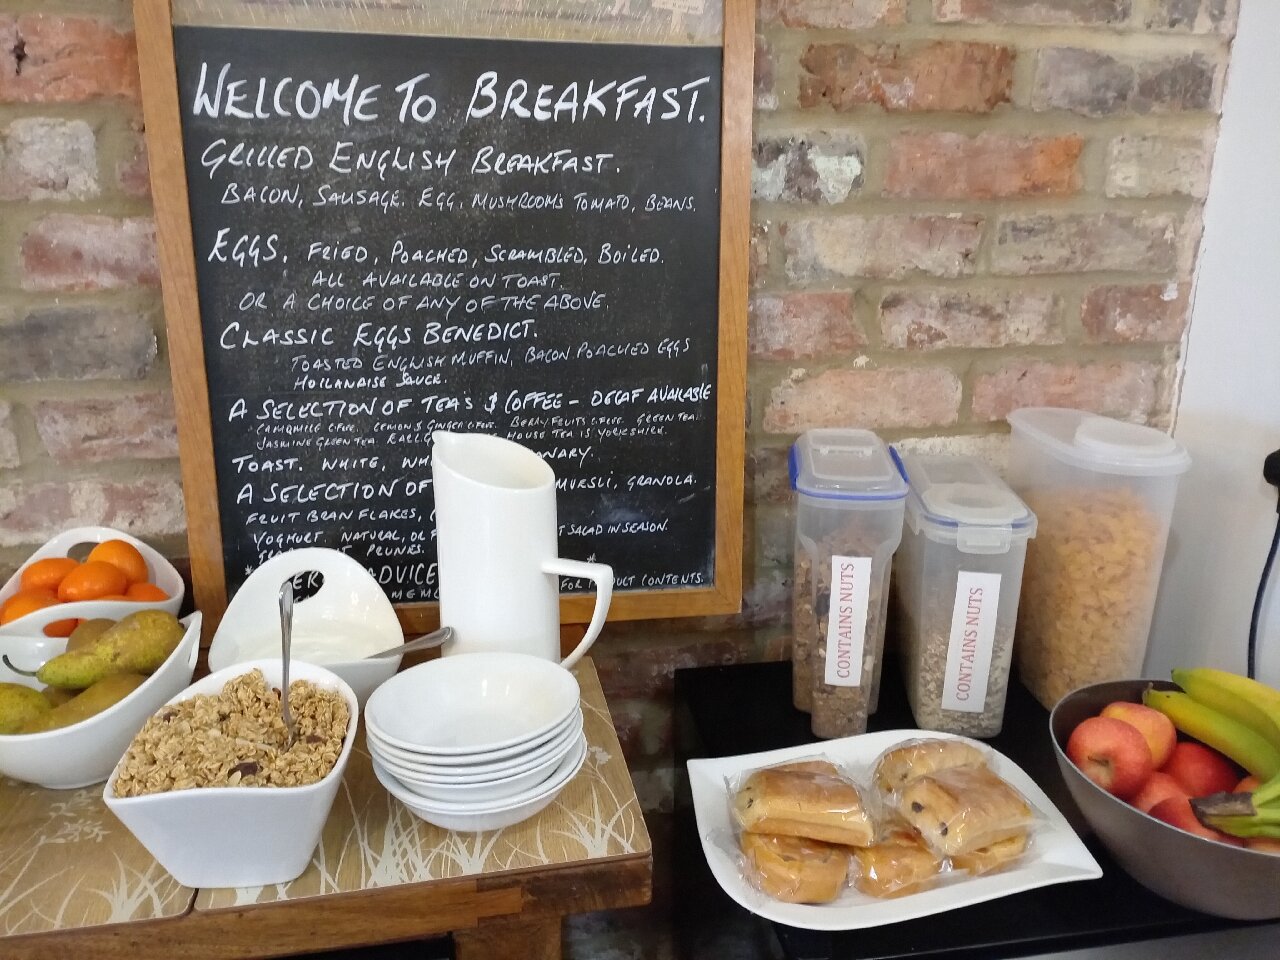 WELCOME TO BREAKFAST.
GRILLED ENGLISH BREAKFAST.
BACON, SAUSAGE. EGG. MUSHROOMS TOMATO, BEANS.
EGGS. FRIED, POACHED, SCRAMBLED, BOILED.
ALL AVAILABLE ON TOAST.
OR A CHOICE OF ANY OF THE ABOVE.
CLASSIC EGGS BENEDICT.
TOASTED ENGLISH MUFFIN, BACON POACHED EGGS
HOLLANAISE SAUCE.
A SELECTION OF TEA'S & COFFEE - DECAF AVAILABLE
CAMOMILE C.FREE. LEMON & GINGER C.FREE. BERRY FRUITS C.FREE. GREEN TEA.
JASMINE GREEN TEA. EARL HOUSE TEA IS YORKSHIRE.
TOAST. WHITE,
A SELECTION OF MUESLI, GRANOLA.
FRUIT BRAN FLAKES,
YOGHURT. NATURAL, OR SALAD IN SEASON.
PRUNES.
ADVICE
FOR CONTENTS.
CONTAINS NUTS
CONTAINS NUTS